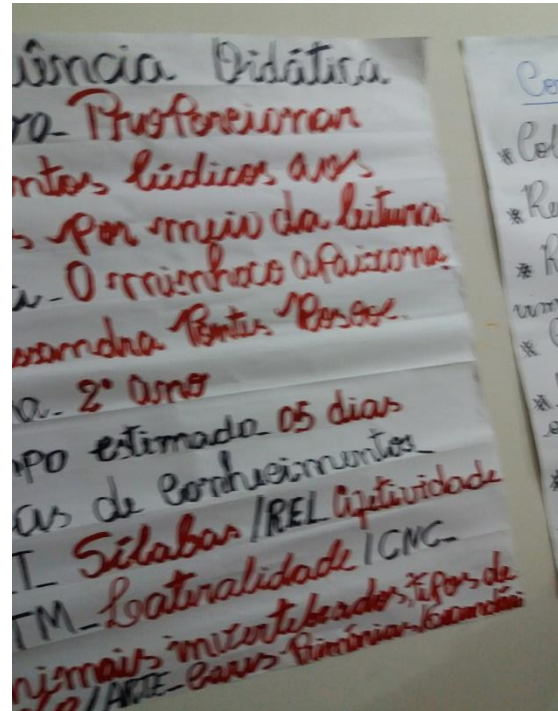 uência Didática
vo- Proporcionar
ntos lúdicos aos
s por meio da leitura
a- O minhoco apaixona
ssandra Pontes Roscoe.
ma- 2º ano
mpo estimado- 05 dias
as de conhecimentos-
T- Sílabas/REL afetividade
TM- Lateralidade/CNC-
nimais invertebrados, tipos de
/ARTE- Cores Primárias/
Co
* Col
* Re
* R
um
*
*
*